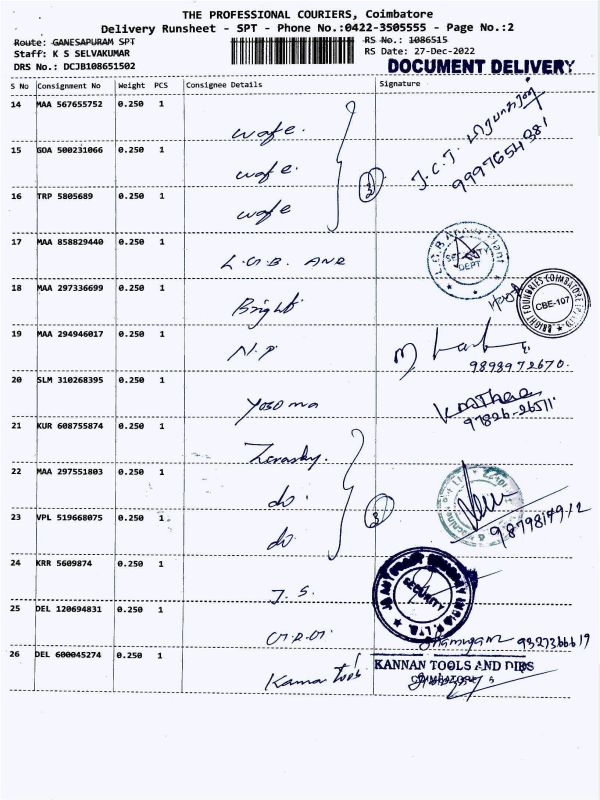 THE PROFESSIONAL COURIERS, Coimbatore
Delivery Runsheet - SPT - Phone No.:0422-3505555 - Page No.:2
Route: GANESAPURAM SPT
RS No.: 1086515
Staff: K S SELVAKUMAR
RS Date: 27-Dec-2022
DRS No.: DCJB108651502
DOCUMENT DELIVERY
S No Consignment No Weight PCS Consignee Details Signature
14 MAA 567655752 0.250 1 wafe.
J.C.T.
9997654381
15 GOA 500231066 0.250 1 wafe.
3
16 TRP 5805689 0.250 1 wafe
17 MAA 858829440 0.250 1 L.G.B. ANR
L.G.B Plant
SECURITY
DEPT
18 MAA 297336699 0.250 1 Bright
BRIGHT FOUNDRIES COIMBATORE (P) LTD
CBE-107
19 MAA 294946017 0.250 1 N.P
9898972670.
20 SLM 310268395 0.250 1
97826-26511.
21 KUR 608755874 0.250 1
22 MAA 297551803 0.250 1 do.
3
23 VPL 519668075 0.250 1 do
9879819912
24 KRR 5609874 0.250 1 J. S.
SECURITY
25 DEL 120694831 0.250 1
26 DEL 600045274 0.250 1
KANNAN TOOLS AND DIES